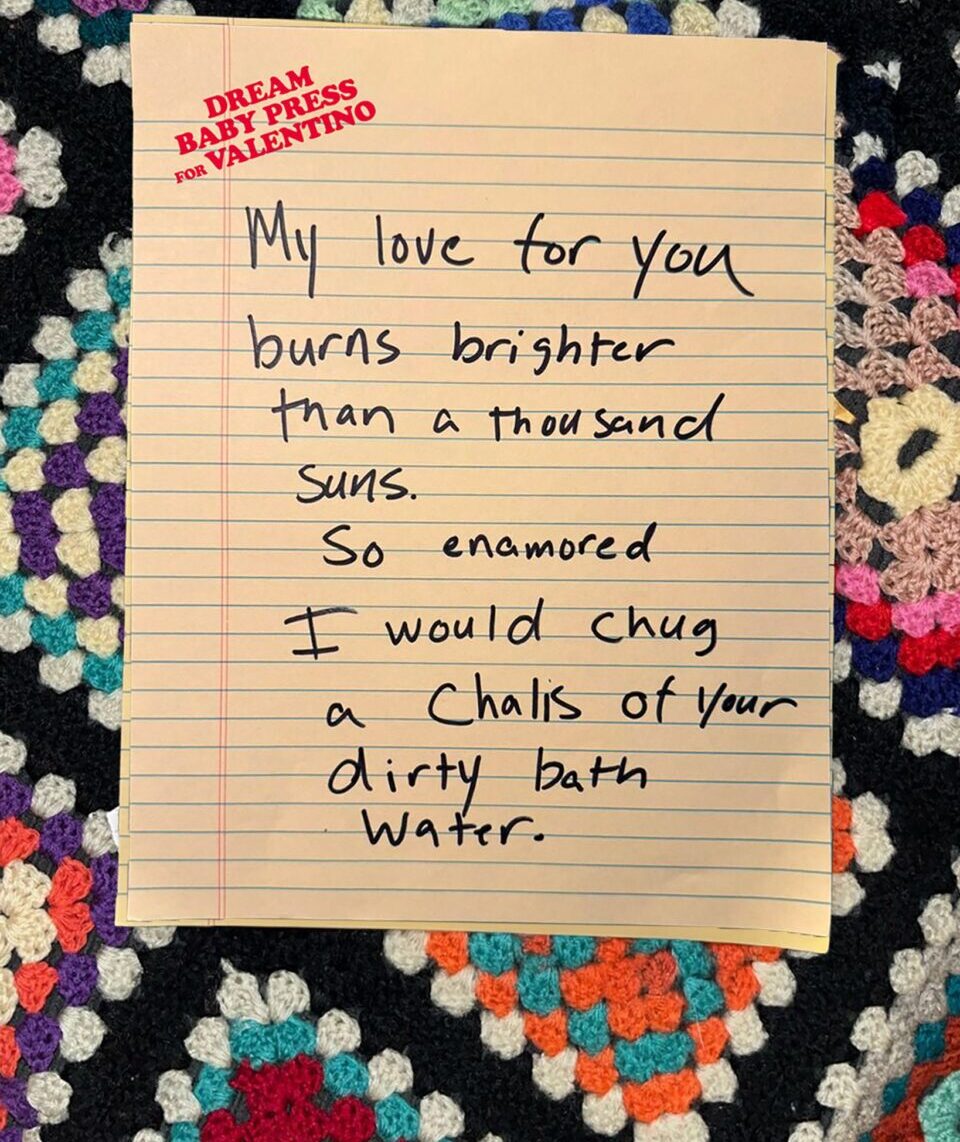 DREAM
BABY PRESS
FOR VALENTINO
My love for you
burns brighter
than a thousand
suns.
So enamored
I would chug
a Chalis of your
dirty bath
water.